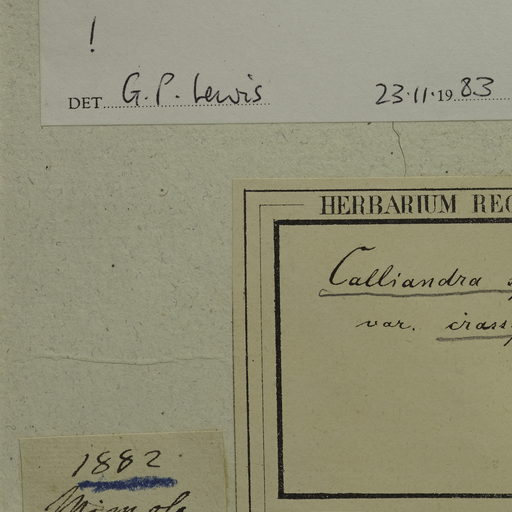 !
DET. G. P. Lewis 23.11.1983
HERBARIUM REG
Calliandra
var. crass
1882